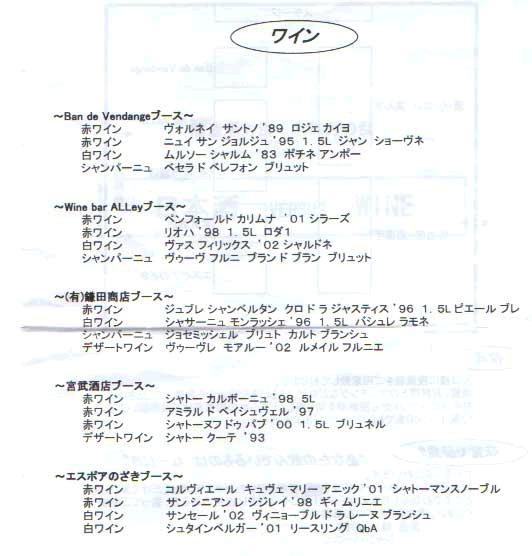 ワイン
～Ban de Vendangeブース～
赤ワイン ヴォルネイ サントノ '89 ロジェ カイヨ
赤ワイン ニュイ サン ジョルジュ '95 1.5L ジャン ショーヴネ
白ワイン ムルソー シャルム '83 ポチネ アンポー
シャンパーニュ ベセラド ベレフォン ブリュット
～Wine bar ALLeyブース～
赤ワイン ペンフォールド カリムナ '01 シラーズ
赤ワイン リオハ '98 1.5L ロダ1
白ワイン ヴァス フィリックス '02 シャルドネ
シャンパーニュ ヴゥーヴ フルニ ブランド ブラン ブリュット
～(有)鎌田商店ブース～
赤ワイン ジュブレ シャンベルタン クロ ド ラ ジャスティス '96 1.5L ピエール ブレ
白ワイン シャサーニュ モンラッシェ '96 1.5L バシュレ ラモネ
シャンパーニュ ジョセミッシェル ブリュト カルト ブランシュ
デザートワイン ヴゥーヴレ モアルー '02 ルメイル フルニエ
～宮武酒店ブース～
赤ワイン シャトー カルボーニュ '98 5L
赤ワイン アミラルド ベイシュヴェル '97
赤ワイン シャトーヌフドゥ パプ '00 1.5L ブリュネル
デザートワイン シャトー クーテ '93
～エスポアのざきブース～
赤ワイン コルヴィエール キュヴェ マリー アニック '01 シャトーマンスノーブル
赤ワイン サン シニアン レ シジレイ '98 ギィ ムリニエ
白ワイン サンセール '02 ヴィニョーブル ド ラ レーヌ ブランシュ
白ワイン シュタインベルガー '01 リースリング QbA